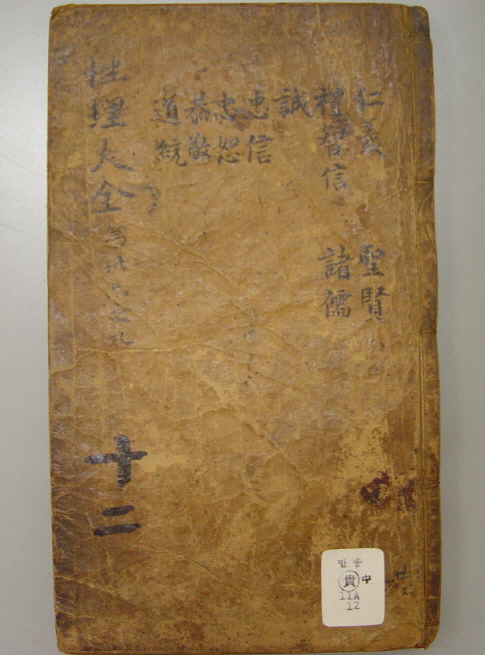 仁義
禮智信
誠
忠信
忠恕
恭敬
道統
聖賢
諸儒
性理大全
十二
만송
貴 中
11A
12